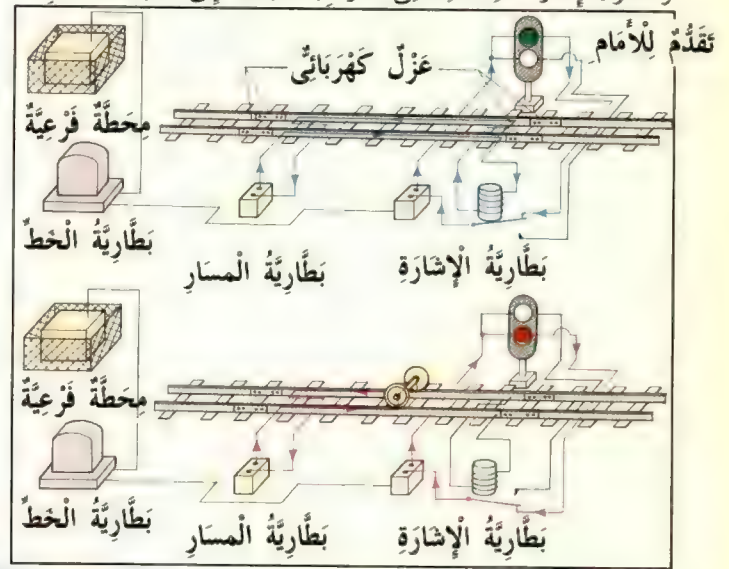 تَقَدُّمٌ لِلْأَمَام
عَزْلٌ كَهْرَبَائِيٌّ
مِحَطَّةٌ فَرْعِيَّةٌ
بَطَّارِيَّةُ الْخَطِّ
بَطَّارِيَّةُ الْمسَارِ
بَطَّارِيَّةُ الْإِشَارَةِ
مِحَطَّةٌ فَرْعِيَّةٌ
بَطَّارِيَّةُ الْخَطِّ
بَطَّارِيَّةُ الْمسَارِ
بَطَّارِيَّةُ الْإِشَارَةِ